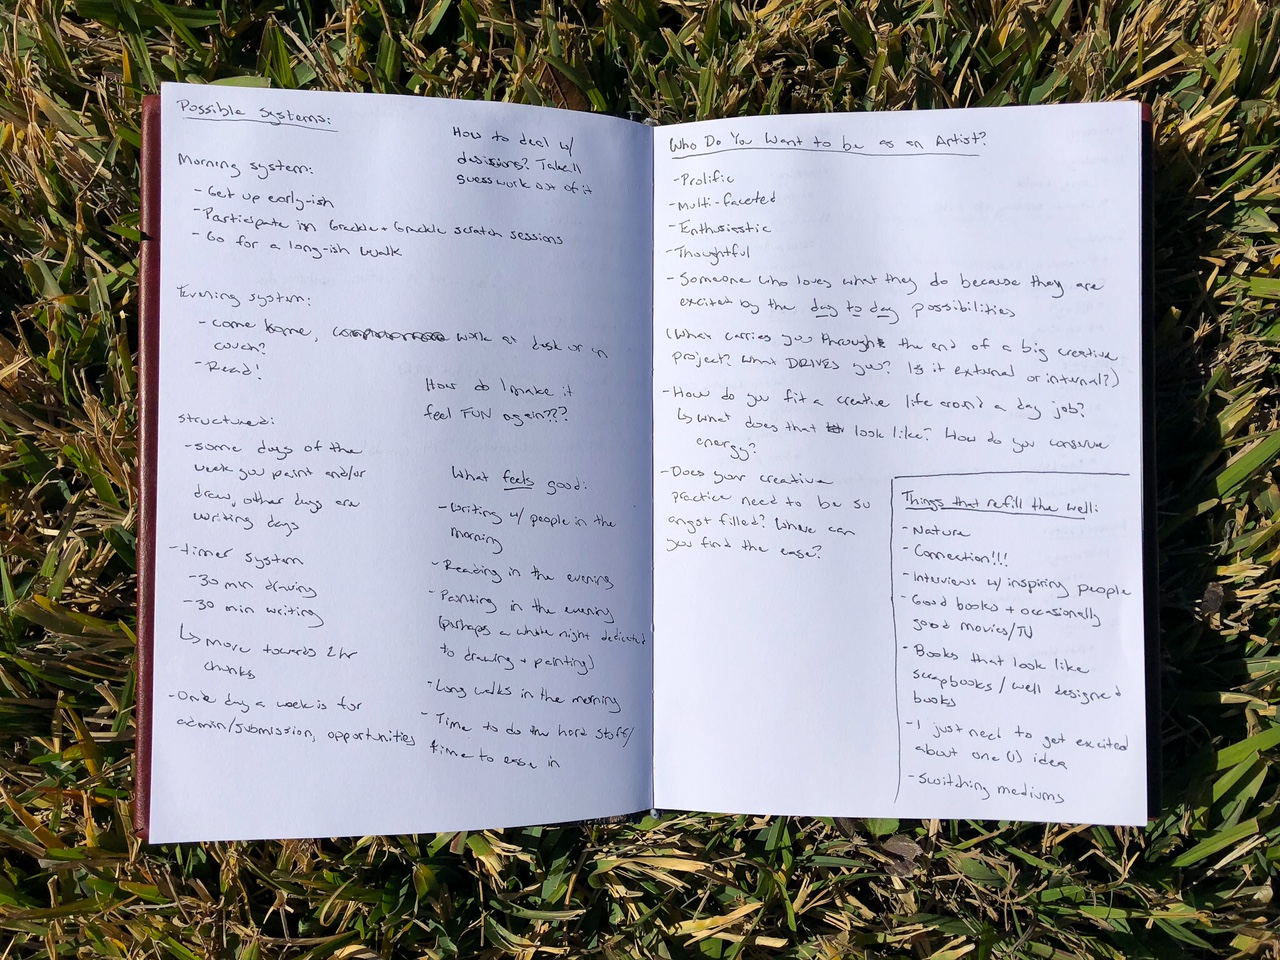 Possible Systems:
Morning system:
- Get up early-ish
- Participate in Grackle + Grackle scratch sessions
- Go for a long-ish walk
How to deal w/
decisions? Take all
guess work out of it
Evening system:
- come home, work at desk or on
couch?
- Read!
How do I make it
feel FUN again???
Structured:
- some days of the
week you paint and/or
draw, other days are
writing days
- timer system
- 30 min drawing
- 30 min writing
↳ move towards 2hr
chunks
- One day a week is for
admin/submission, opportunities
What feels good:
- Writing w/ people in the
morning
- Reading in the evening
- Painting in the evening
(perhaps a whole night dedicated
to drawing + painting)
- Long walks in the morning
- Time to do the hard stuff/
time to ease in
Who Do You Want to be as an Artist?
- Prolific
- Multi-faceted
- Enthusiastic
- Thoughtful
- Someone who loves what they do because they are
excited by the day to day possibilities
(What carries you through the end of a big creative
project? What DRIVES you? Is it external or internal?)
- How do you fit a creative life around a day job?
↳ What does that look like? How do you conserve
energy?
- Does your creative
practice need to be so
angst filled? Where can
you find the ease?
Things that refill the well:
- Nature
- Connection!!!
- Interviews w/ inspiring people
- Good books + occasionally
good movies/TV
- Books that look like
scrapbooks / well designed
books
- I just need to get excited
about one (1) idea
- Switching mediums